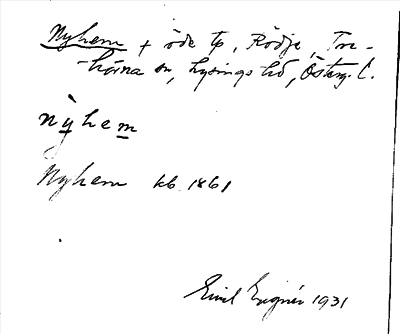 Nyhem + öde tp, Rödje, Tre-
hörna sn, Lysings hd, Österg. l.
nyhem
Nyhem kb 1861
Emil 1931